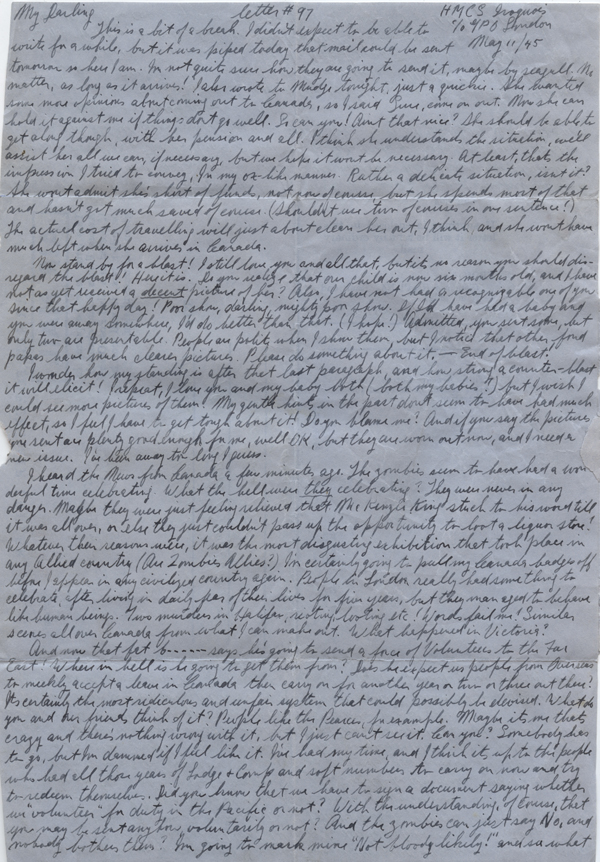 My Darling letter #97 HMCS Iroquois
c/o GPO London
This is a bit of a break. I didn't expect to be able to May 11/45
write for a while, but it was piped today that mail could be sent
tomorrow so here I am. I'm not quite sure how they are going to send it, maybe by seagull. No
matter, as long as it arrives! I also wrote to Madge tonight, just a quickie. She wanted
some more opinions about coming out to Canada, so I said Sure, come on out. Now she can
hold it against me if things don't go well. So can you! Ain't that nice? She should be able to
get along though, with her pension and all. I think she understands the situation, we'll
assist her all we can, if necessary, but we hope it won't be necessary. At least, that's the
impression I tried to convey, in my ox-like manner. Rather a delicate situation, isn't it?
She won't admit she's short of funds, not now of course, but she spends most of that
and hasn't got much saved of course. (Shouldn't use two of courses in one sentence!)
The actual cost of travelling will just about clean her out, I think, and she won't have
much left when she arrives in Canada.
Now stand by for a blast! I still love you and all that, but it's no reason you should dis-
regard the blast! Here it is. Do you realize that our child is now six months old, and I have
not as yet received a decent picture of her? Also, I have not had a recognizable one of you
since that happy day! Poor show, darling, mighty poor show. If I'd have had a baby and
you were away somewhere, I'd do better than that. (I hope!) Admitted, you sent some, but
only two are presentable. People are polite when I show them, but I notice that other, fond
papas have much clearer pictures. Please do something about it, — End of blast.
I wonder how my standing is after that last paragraph, and how strong a counter-blast
it will elicit! I repeat, I love you and my baby both (both my babies!) but I wish I
could see more pictures of them! My gentle hints in the past don't seem to have had much
effect, so I feel I have to get tough about it! Do you blame me? And if you say the pictures
you sent are plenty good enough for me, well OK, but they are worn out now, and I need a
new issue. I've been away too long I guess.
I heard the News from Canada a few minutes ago. The zombies seem to have had a won-
derful time celebrating. What the hell were they celebrating? They were never in any
danger. Maybe they were just feeling relieved that Mac Kenzie King stuck to his word till
it was all over, or else they just couldn't pass up the opportunity to loot a liquor store!
Whatever their reasons were, it was the most disgusting exhibition that took place in
any Allied country (Are Zombies Allies?) I'm certainly going to pull my Canada badges off
before I appear in any civilized country again. People in London really had something to
celebrate, after living in daily fear of their lives for five years, but they managed to behave
like human beings. Two murders in Halifax, rioting, looting etc! Words fail me! Similar
scenes all over Canada from what I can make out. What happened in Victoria?
And now that fat b------ says he's going to send a force of Volunteers to the Far
East! Where in hell is he going to get them from? Does he expect us people from Overseas
to meekly accept a leave in Canada then carry on for another year or two or three out there?
It's certainly the most ridiculous and unfair system that could possibly be devised. What do
you and our friends think of it? People like the Pearces, for example. Maybe it's me that's
crazy and there's nothing wrong with it, but I just can't see it. Can you? Somebody has
to go, but I'm damned if I feel like it. I've had my time, and I think it's up to the people
who had all those years of Lodge + Comp and soft numbers to carry on now and try
to redeem themselves. Did you know that we have to sign a document saying whether
we "volunteer" for duty in the Pacific or not? With the understanding, of course, that
you may be sent anyhow, voluntarily or not? And the zombies can just say No, and
nobody bothers them? I'm going to mark mine "Not bloody likely!" and see what